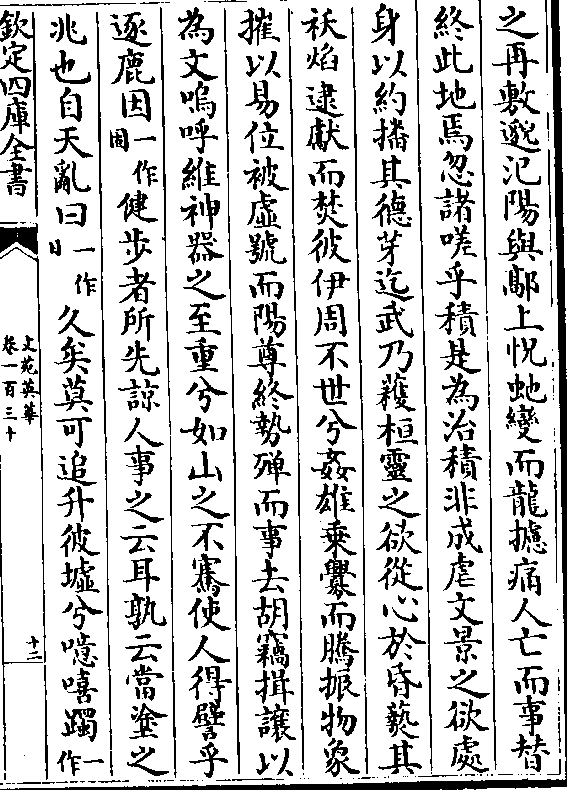 之再敷邈汜陽與鄗上恍虵變而龍攄痛人亡而事替
終此地焉忽諸嗟乎積是為治積非成虐文景之欲處
身以約播其德芽迄武乃穫桓靈之欲從心於昏蓺其
祅焰逮獻而焚彼伊周不世兮姦雄乗釁而騰振物象
摧以易位被虛號而陽尊終勢殫而事去胡竊揖讓以
為文嗚呼維神器之至重兮如山之不騫使人得譬乎
逐鹿因一作固健步者所先諒人事之云耳孰云當塗之
兆也自天亂曰一作日久矣莫可追升彼墟兮噫嘻躅一作
欽定四庫全書
文苑英華
卷一百三十
十二